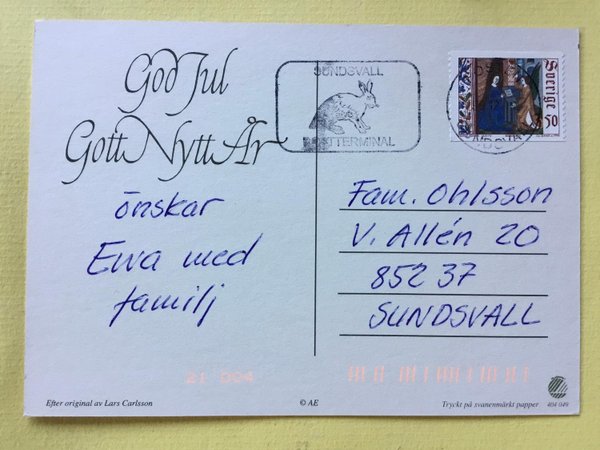 God Jul
Gott Nytt År
önskar
Ewa med
familj
SUNDSVALL
POSTTERMINAL
Sverige
3.50
Fam. Ohlsson
V. Allén 20
852 37
SUNDSVALL
21 004
Efter original av Lars Carlsson
© AE
Tryckt på svanenmärkt papper
404 049